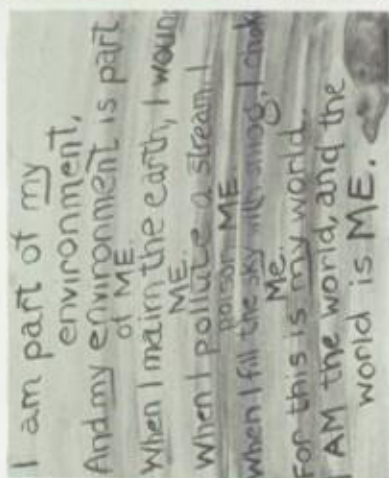 I am part of my
environment,
And my environment is part
of ME.
When I maim the earth, I woun
ME.
When I pollute a stream, I
poison ME.
When I fill the sky with smog, I
Me.
For this is my world.
I AM the world, and the
world is ME.